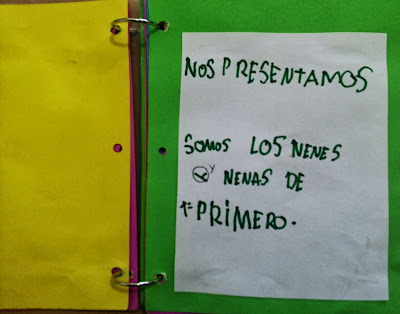 NOS PRESENTAMOS
SOMOS LOS NENES
Y NENAS DE
1º PRIMERO.